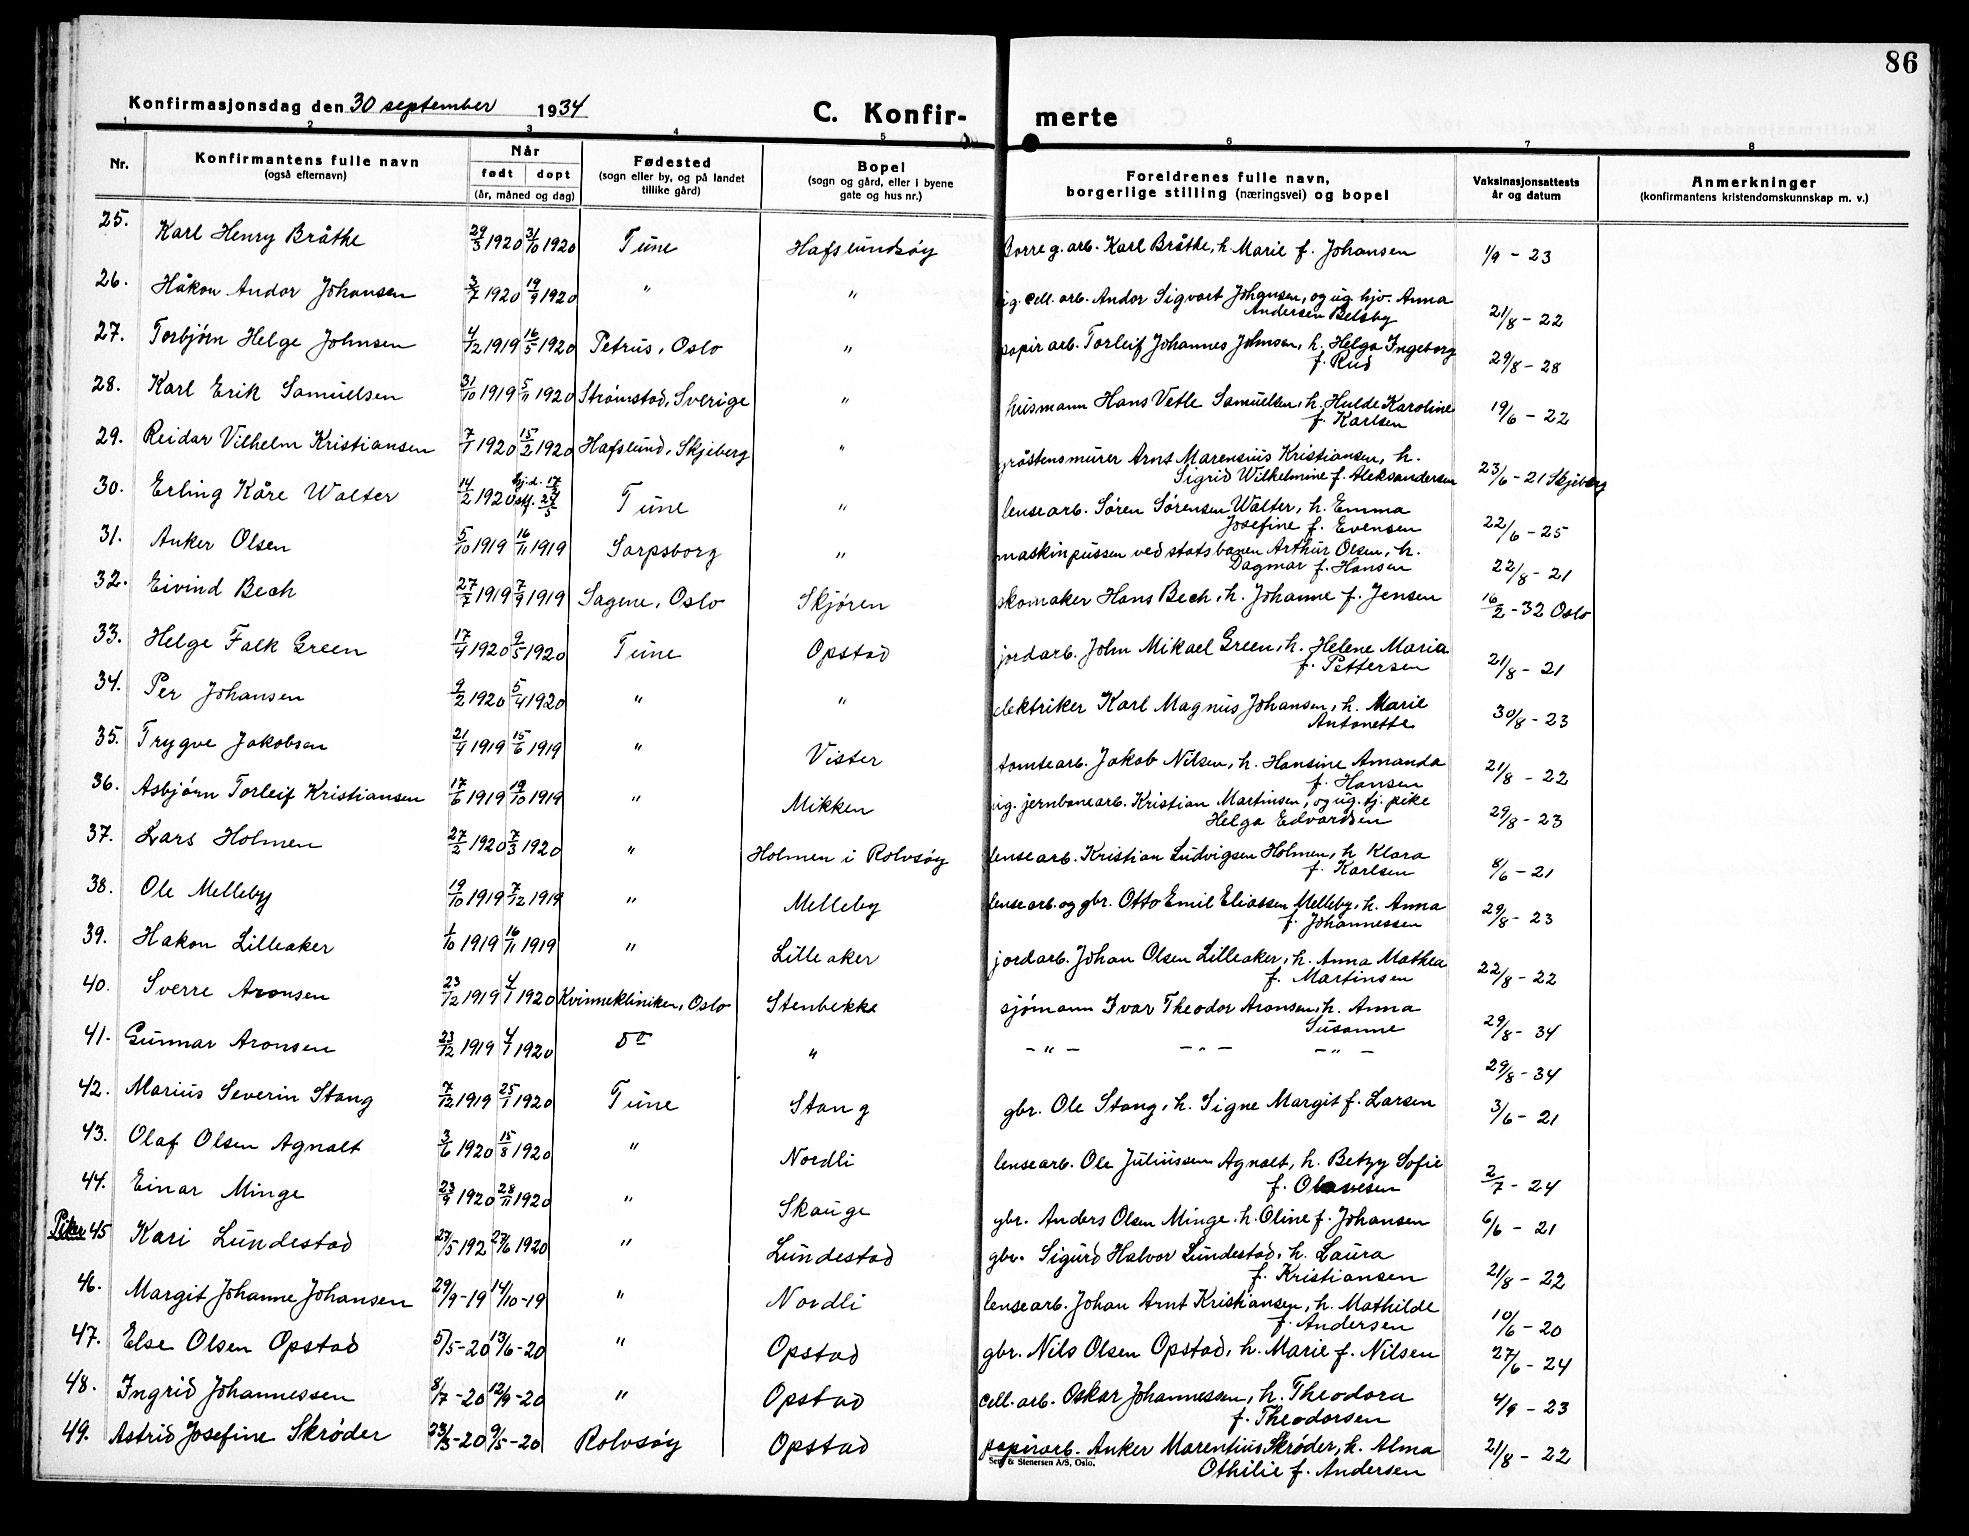 86
Konfirmasjonsdag den 30 september 1934
C. Konfir- merte
1 2 3 4 5 6 7 8
Nr. Konfirmantens fulle navn (også efternavn) Når født døpt (år, måned og dag) Fødested (sogn eller by, og på landet tillike gård) Bopel (sogn og gård, eller i byene gate og hus nr.) Foreldrenes fulle navn, borgerlige stilling (næringsvei) og bopel Vaksinasjonsattests år og datum Anmerkninger (konfirmantens kristendomskunnskap m. v.)
25. Karl Henry Bråthe 29/3 1920 31/10 1920 Tune Hafslundsøy Borreg. arb. Karl Bråthe, h. Marie f. Johansen 1/9 - 23
26. Håkon Andor Johansen 3/7 1920 19/9 1920 " " ug. cell. arb. Andor Sigvart Johansen, og ug. hjv. Anna
Andersen Belsby 21/8 - 22
27. Torbjørn Helge Johnsen 4/12 1919 16/5 1920 Petrus, Oslo " papirarb. Torleif Johannes Johnsen, h. Helga Ingeborg
f. Rud 29/8 - 28
28. Karl Erik Samuelsen 31/10 1919 5/11 1920 Strømstad, Sverige " husmann Hans Vetle Samuelsen, h. Hulda Karoline
f. Karlsen 19/6 - 22
29. Reidar Vilhelm Kristiansen 7/1 1920 15/2 1920 Hafslund, Skjeberg " gråstensmurer Arnt Marensius Kristiansen, h.
Sigrid Wilhelmine f. Aleksandersen 23/6 - 21 Skjeberg
30. Erling Kåre Walter 14/2 1920 hj.d. 17/2 stf. 24/5 Tune " lensearb. Søren Sørensen Walter, h. Emma
Josefine f. Evensen 22/6 - 25
31. Anker Olsen 5/10 1919 16/11 1919 Sarpsborg " maskinpusser ved statsbanen Arthur Olsen, h.
Dagmar f. Hansen 22/8 - 21
32. Eivind Bech 27/7 1919 7/9 1919 Sagene, Oslo Skjøren skomaker Hans Bech, h. Johanne f. Jensen 16/2 - 32 Oslo
33. Helge Falk Green 17/4 1920 9/5 1920 Tune Opstad jordarb. John Mikael Green, h. Helene Maria
f. Pettersen 21/8 - 21
34. Per Johansen 9/2 1920 5/4 1920 " " elektriker Karl Magnus Johansen, h. Marie
Antonette 30/8 - 23
35. Trygve Jakobsen 21/4 1919 15/6 1919 " Vister tomtearb. Jakob Nilsen, h. Hansine Amanda
f. Hansen 21/8 - 22
36. Asbjørn Torleif Kristiansen 17/6 1919 19/10 1919 " Mikken ug. jernbanearb. Kristian Martinsen, og ug. tj. pike
Helga Edvardsen 29/8 - 23
37. Lars Holmen 27/2 1920 7/3 1920 " Holmen i Rolvsøy lensearb. Kristian Ludvigsen Holmen, h. Klara
f. Karlsen 8/6 - 21
38. Ole Melleby 19/10 1919 7/12 1919 " Melleby lensearb. og gbr. Otto Emil Eliassen Melleby, h. Anna
f. Johannessen 29/8 - 23
39. Hakon Lilleaker 1/10 1919 16/11 1919 " Lilleaker jordarb. Johan Olsen Lilleaker, h. Anna Mathea
f. Martinsen 22/8 - 22
40. Sverre Aronsen 23/12 1919 4/1 1920 Kvinnekliniken, Oslo Stenbekke sjømann Ivar Theodor Aronsen, h. Anna
Susanne 29/8 - 34
41. Gunnar Aronsen 23/12 1919 4/1 1920 do " - " - - " - - " - 29/8 - 34
42. Marius Severin Stang 7/12 1919 25/1 1920 Tune Stang gbr. Ole Stang, h. Signe Margit f. Larsen 3/6 - 21
43. Olaf Olsen Agnalt 3/6 1920 15/8 1920 " Nordli lensearb. Ole Juliussen Agnalt, h. Betzy Sofie
f. Olavesen 2/7 - 24
44. Einar Minge 23/9 1920 28/11 1920 " Skauge gbr. Anders Olsen Minge, h. Oline f. Johansen 6/6 - 21
Piker 45 Kari Lundestad 27/5 192 27/6 1920 " Lundestad gbr. Sigurd Halvor Lundestad, h. Laura
f. Kristiansen 21/8 - 22
46. Margit Johanne Johansen 29/9-19 14/10-19 " Nordli lensearb. Johan Arnt Kristiansen, h. Mathilde
f. Andersen 10/6 - 20
47. Else Olsen Opstad 5/5-20 13/6-20 " Opstad gbr. Nils Olsen Opstad, h. Marie f. Nilsen 27/6 - 24
48. Ingrid Johannessen 8/7-20 12/9-20 " Opstad cell. arb. Oskar Johannessen, h. Theodora
f. Theodorsen 4/9 - 23
49. Astrid Josefine Skrøder 23/3-20 9/5-20 Rolvsøy Opstad papirarb. Anker Marentius Skrøder, h. Alma
Othilie f. Andersen 21/8 - 22
& Stenersen A/S, Oslo.